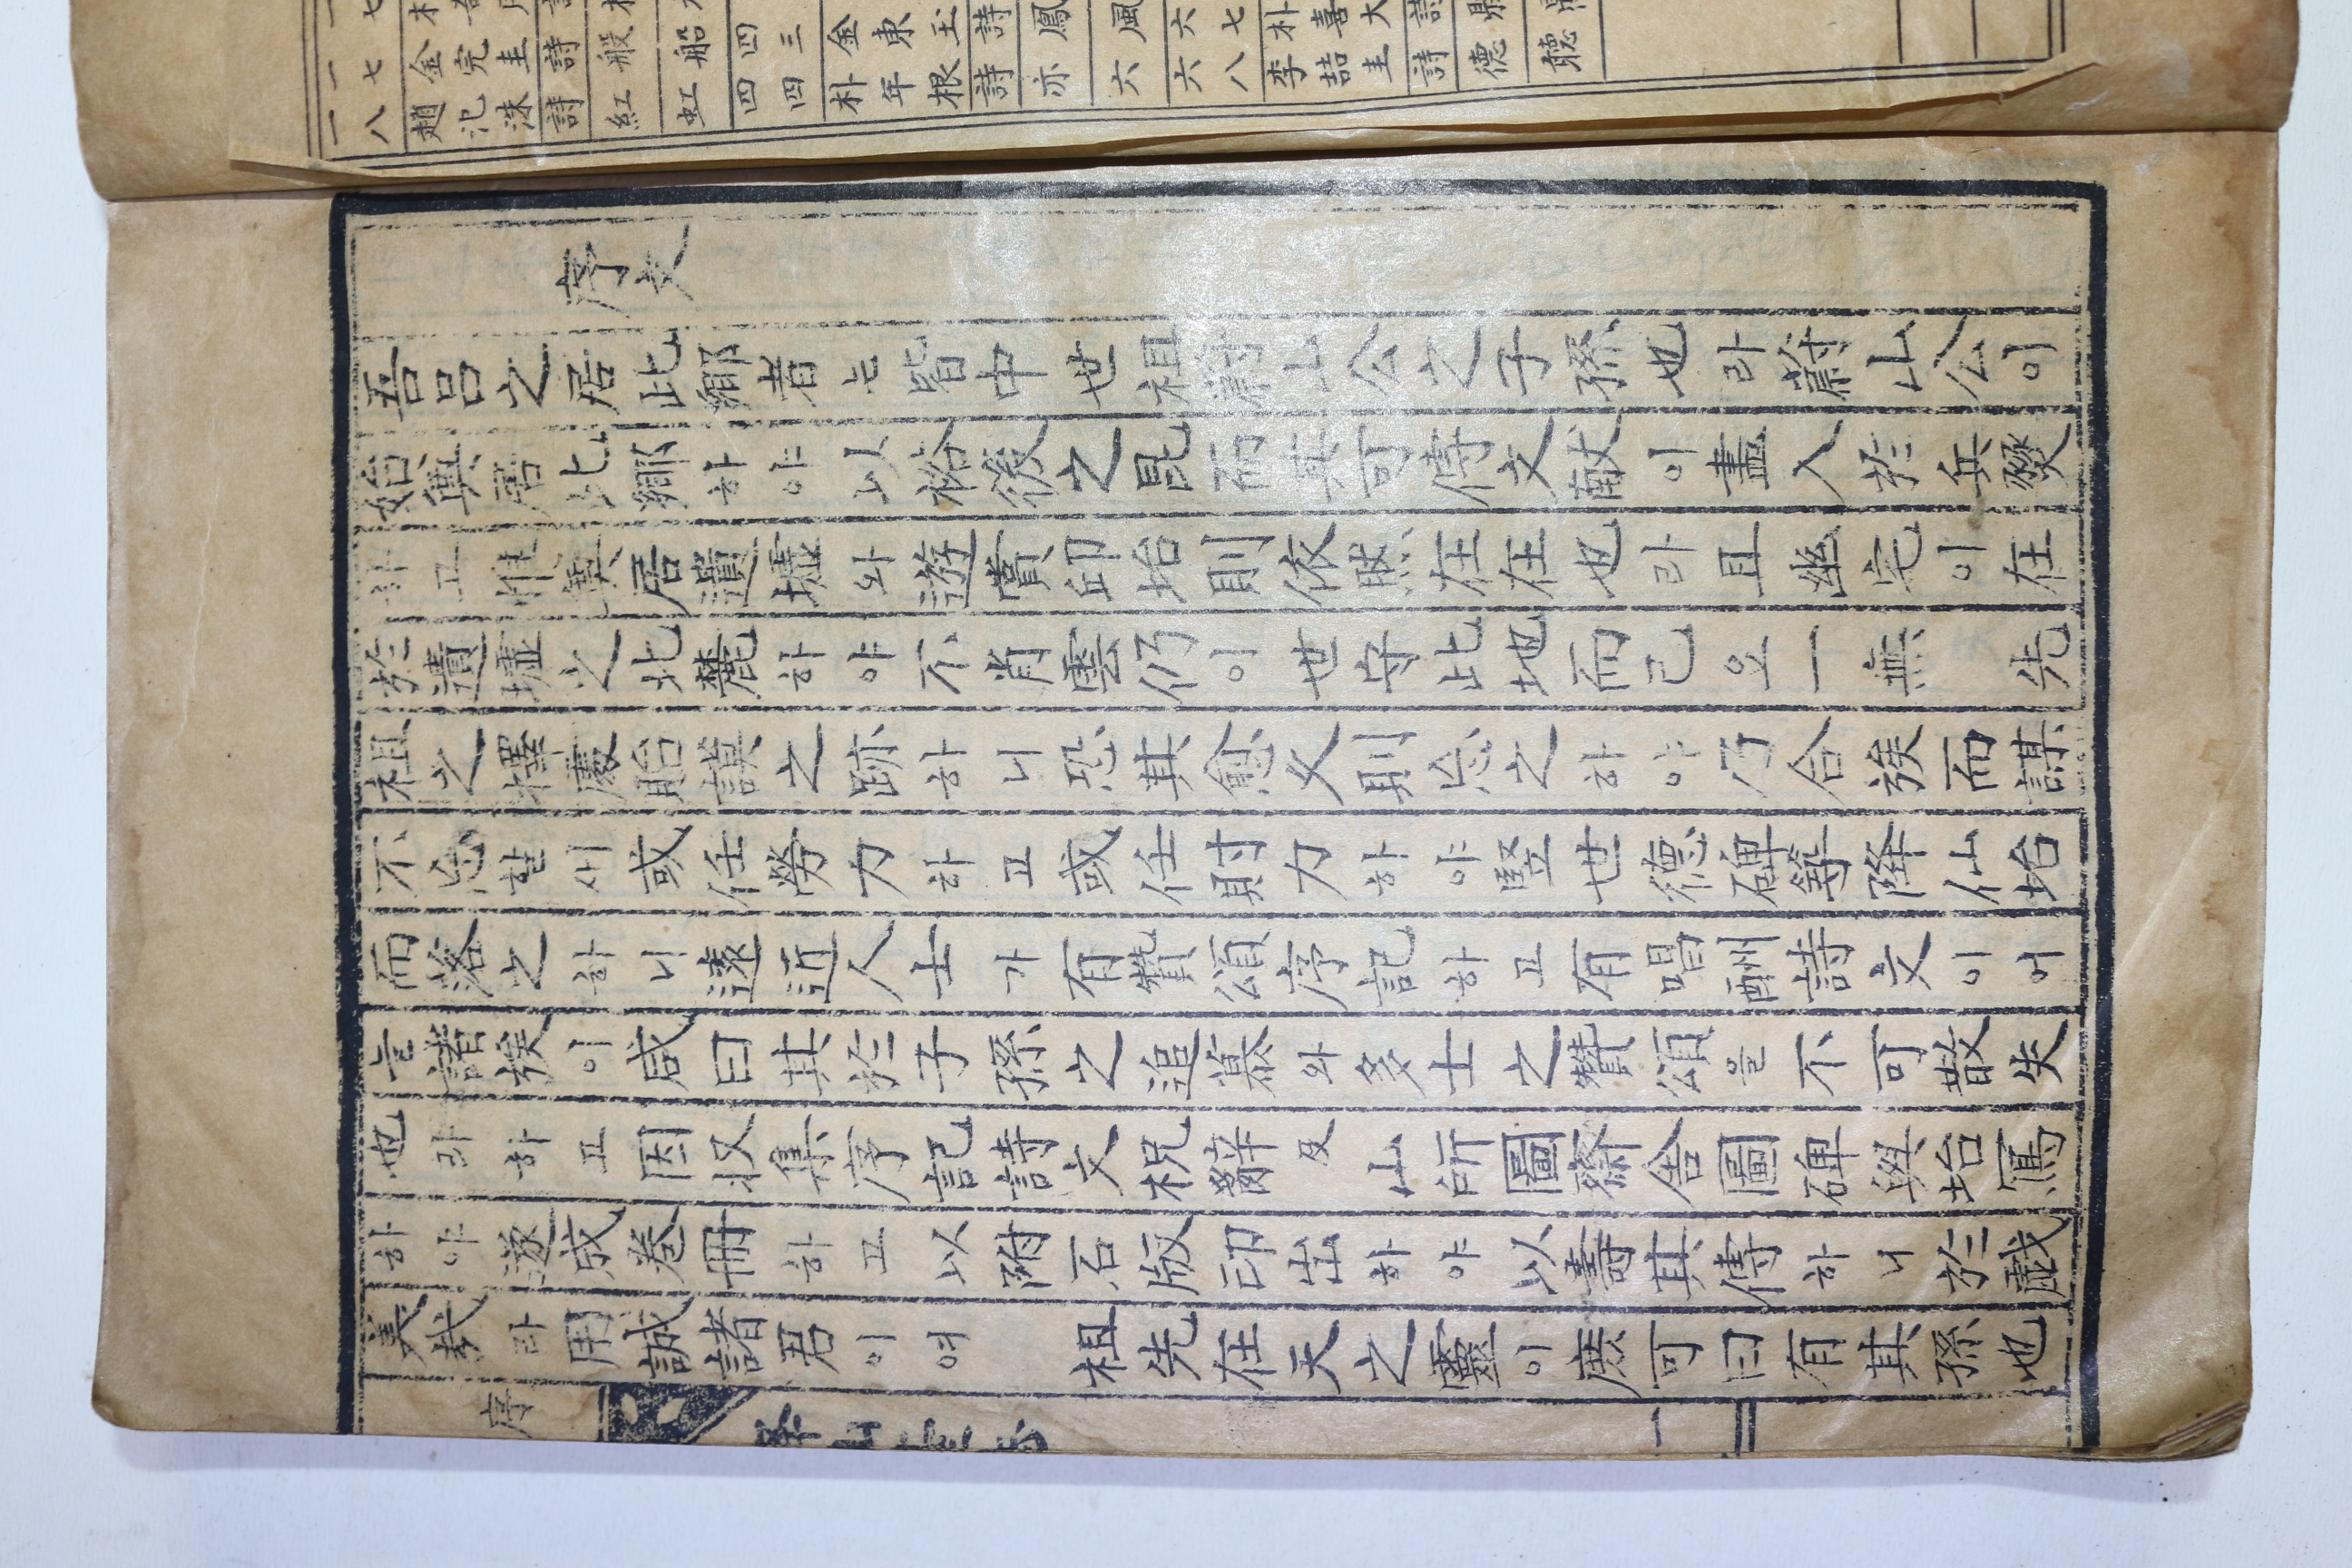 序文
吾呂之居此鄕者는皆中世祖蔚山公之子孫也라蔚山公이
始奠居此鄕하야以裕後之昆而其可傳文献이盡入於兵燹
하고惟奠居遺墟와遊賞卲坮則依然在在也라且幽宅이在
於遺墟之北麓하야不肖雲仍이世守此地而已요一無 先
祖之擇處貽謨之跡하니恐其愈久則忘之하야乃合族而謀
不忘할새或任勞力하고或任財力하야竪世德碑築降仙坮
而落之하니遠近人士가有贊頌序記하고有唱酬詩文이어
늘諸族이咸曰其於子孫之追慕와多士之贊頌을不可散失
也라하고因収集序記詩文祝辭及山所圖齋舍圖碑與坮寫
하야遂成卷冊하고以附石版印出하야以壽其傳하니於戱
美哉라用誠諸君이여 祖先在天之靈이庶可曰有其孫也
序
一
一七 金完圭 詩 船 四三 金東玉 詩 鳳 風 六七 朴喜大 詩
一八 趙汜洙 詩 紅 虹 四四 朴年根 詩 亦 六 六八 李喆圭 詩 德 聽